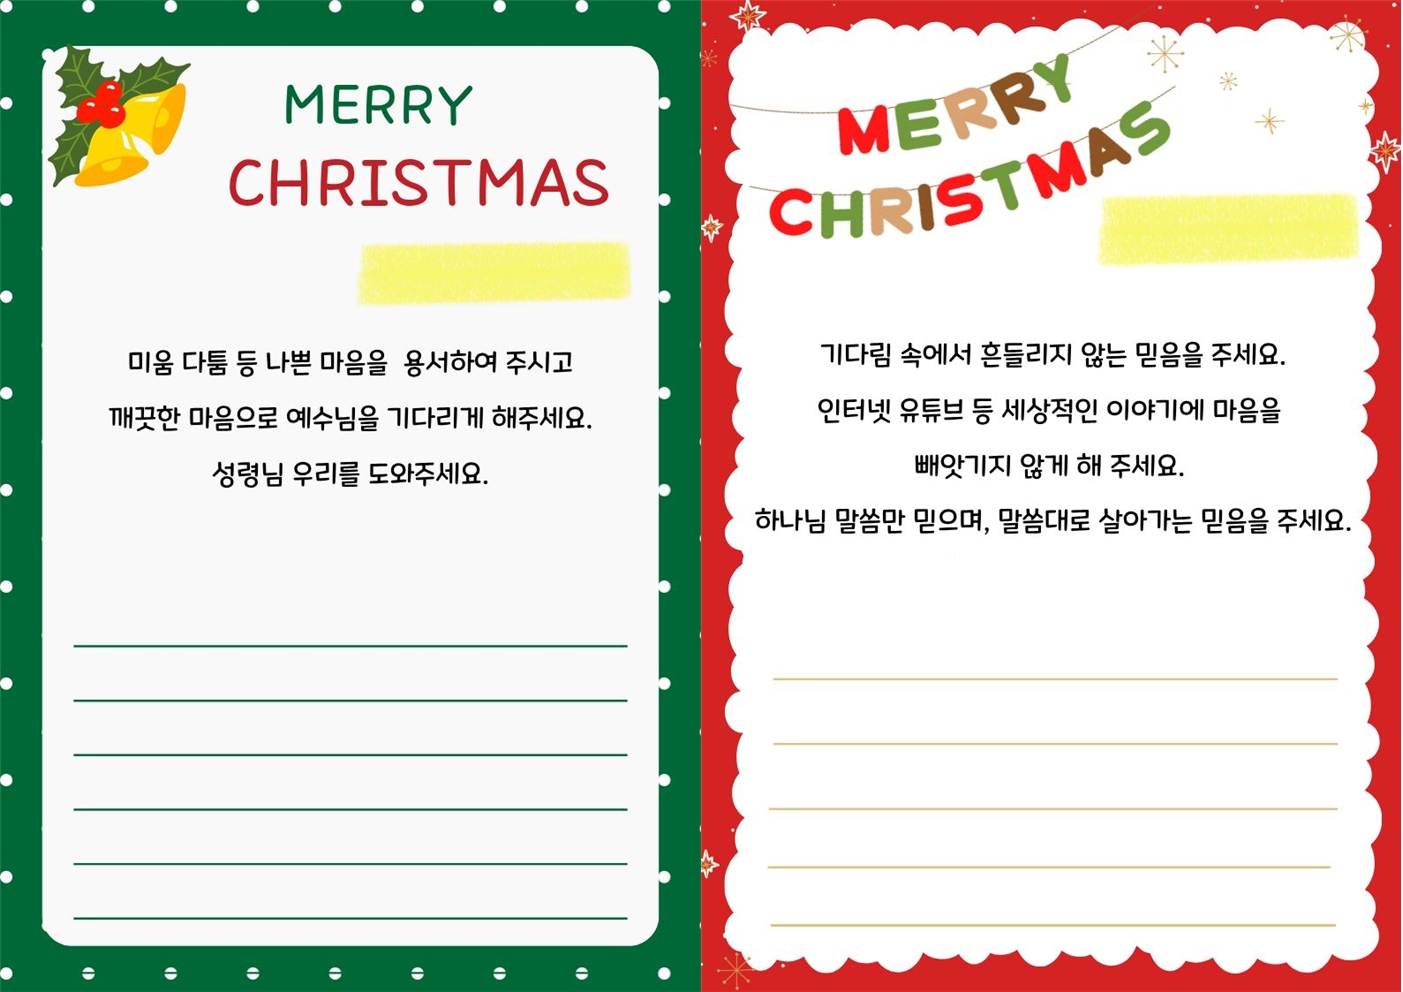 MERRY
CHRISTMAS
미움 다툼 등 나쁜 마음을 용서하여 주시고
깨끗한 마음으로 예수님을 기다리게 해주세요.
성령님 우리를 도와주세요.
MERRY
CHRISTMAS
기다림 속에서 흔들리지 않는 믿음을 주세요.
인터넷 유튜브 등 세상적인 이야기에 마음을
빼앗기지 않게 해 주세요.
하나님 말씀만 믿으며, 말씀대로 살아가는 믿음을 주세요.